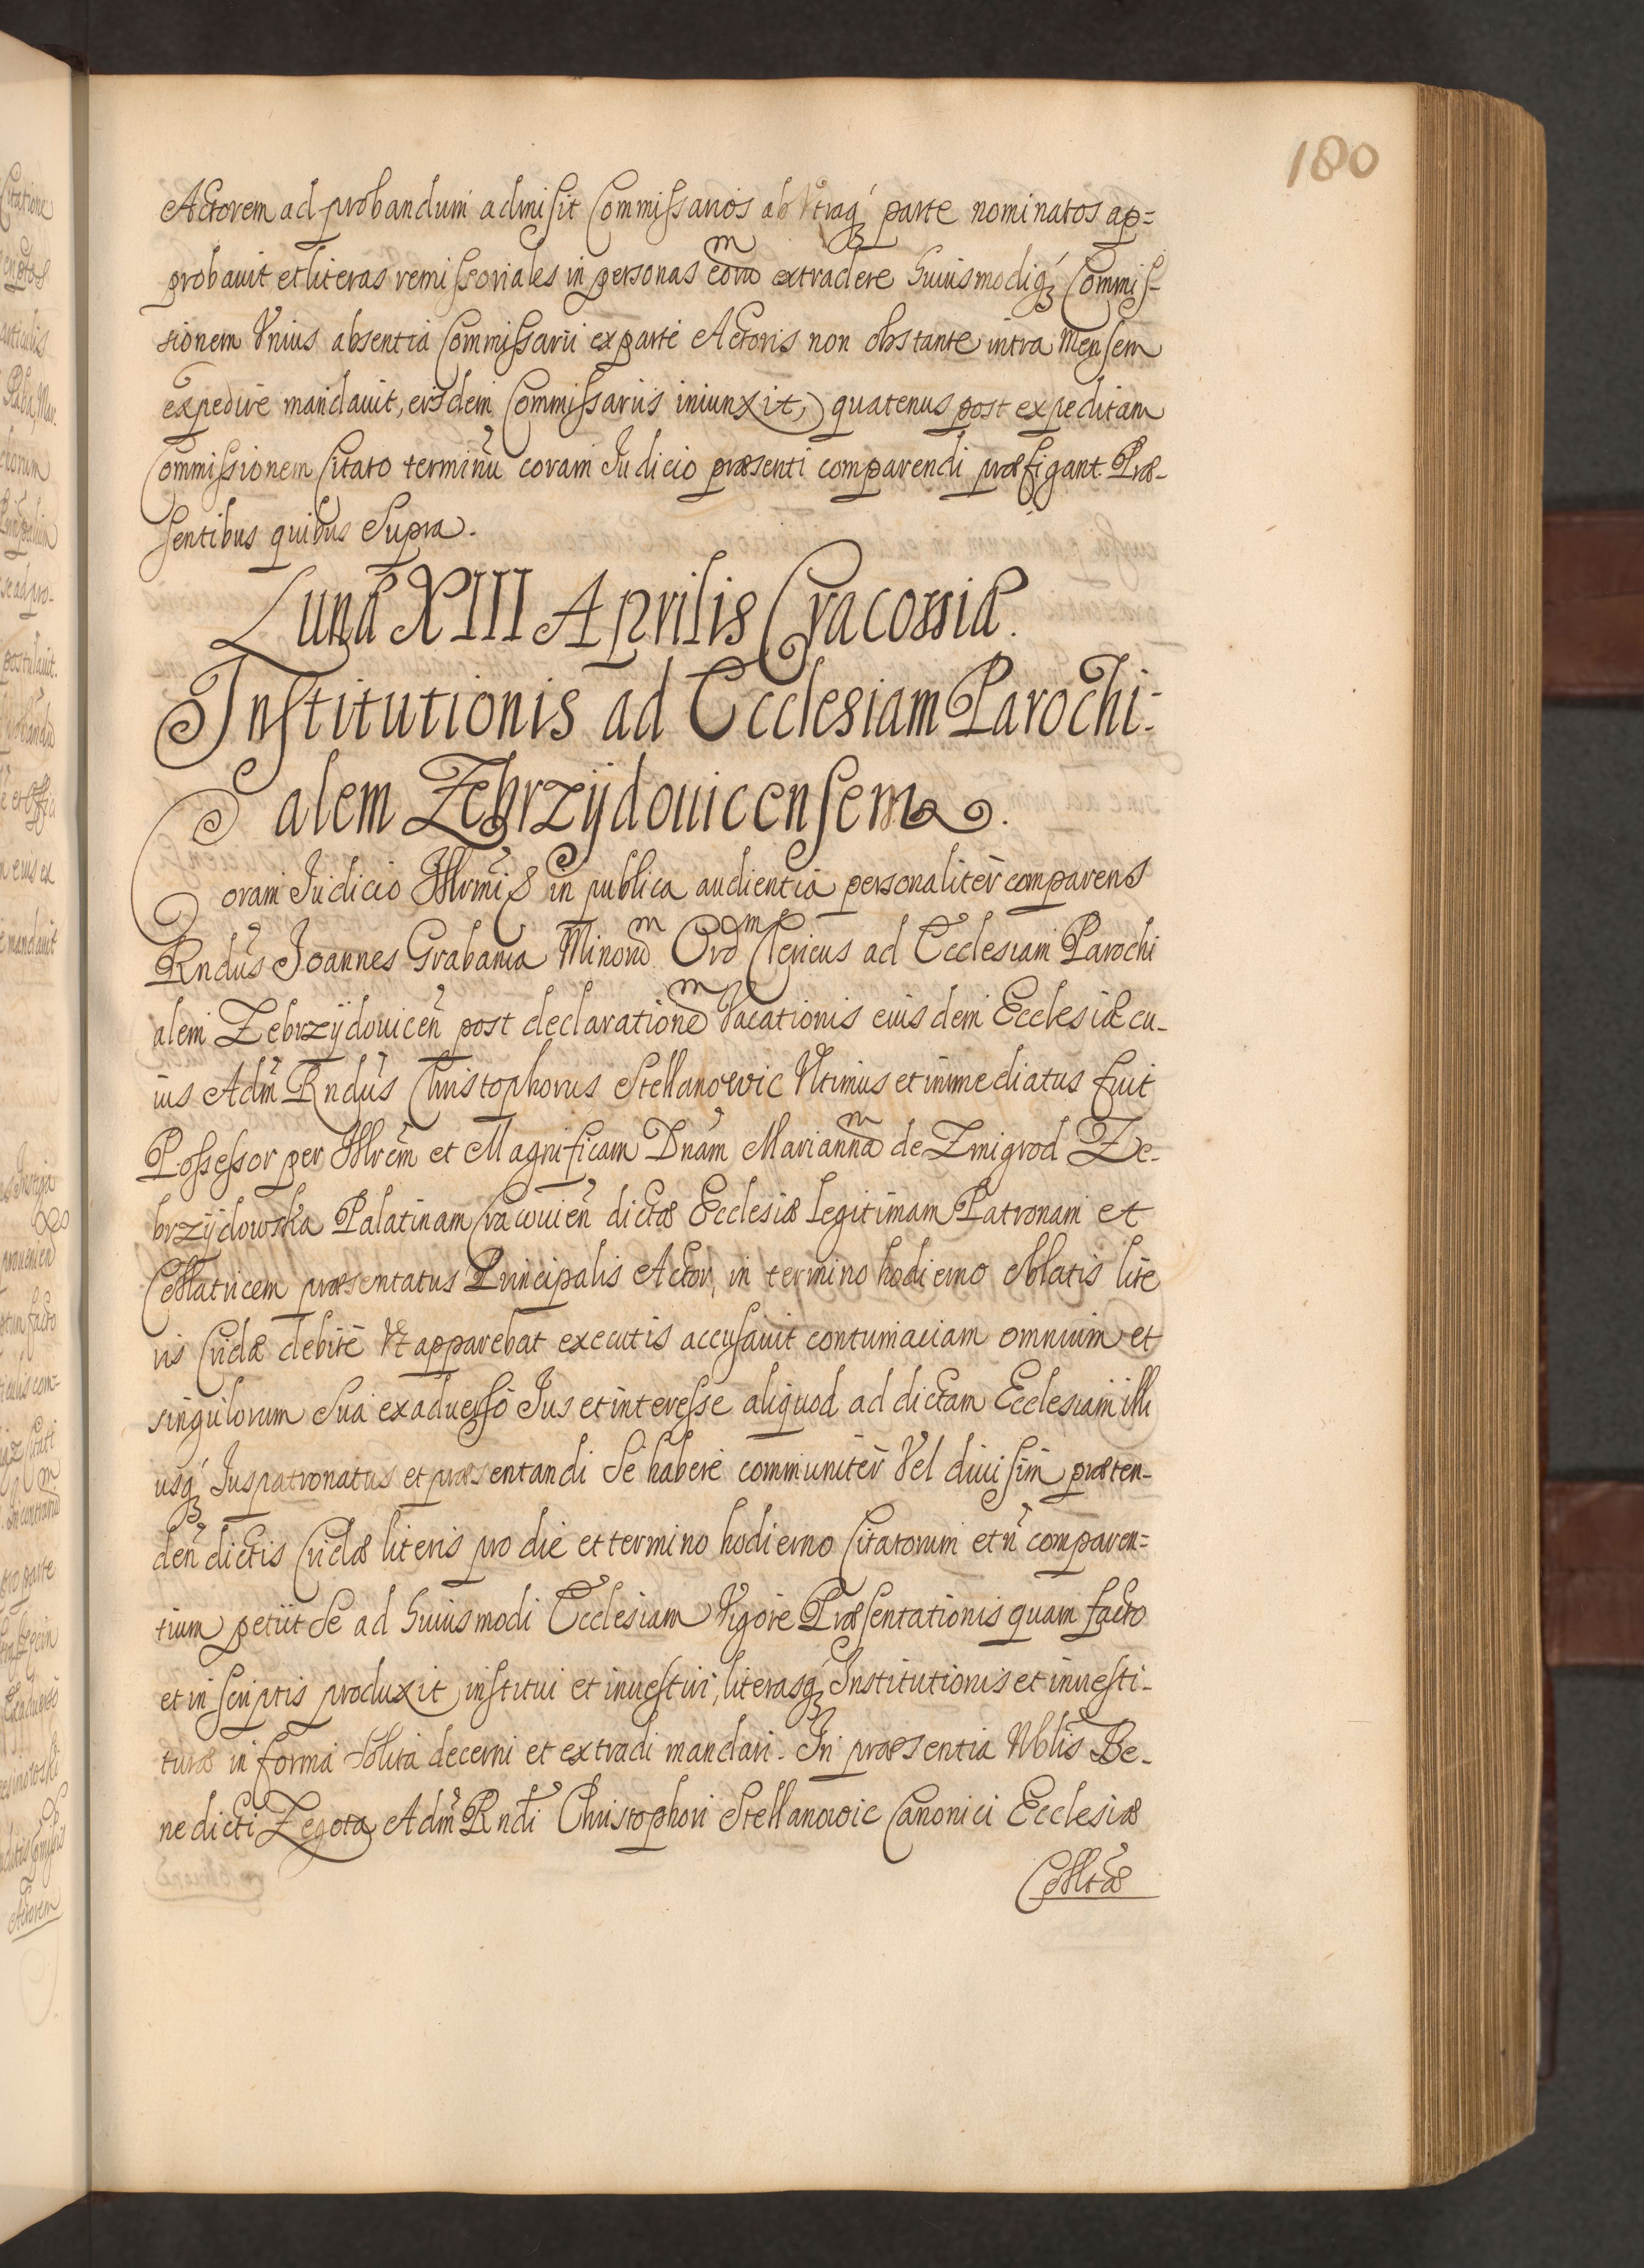 180
Actorem ad probandum admisit Commissarios ab Vtraq́ parte nominatos ap=
probauit et literas remissoriales in personas eoru͠m extradere huiusmodiq́ Commis-
sionem Vnius absentia Commissarii ex parte Actoris non obstante intra Mensem
expedire mandauit, eisdem Commissariis iniunxit, quatenus post expeditam
Commissionem Citato terminũ coram Iudicio præsenti comparendi præfigant. Præ-
sentibus quibus Supra.
Luna XIII Aprilis Cracoviæ.
Institutionis ad Ecclesiam Parochi-
alem Zebrzÿdouicensem.
Coram Iudicio Illrmi S in publica audientia personaliter comparens
Rndus Joannes Grabania Minorum Ord Clericus ad Ecclesiam Parochi
alem Zebrzÿdouiceñ post declarationem Vacationis eiusdem Ecclesiæ cu-
ius Adm Rndus Christophorus Stellanowic Vltimus et immediatus fuit
Possessor per Illrem et Magnificam Dnam Mariannam de Zmigrod Ze-
brzÿdowska Palatinam Cracouieñ dictæ Ecclesiæ legitimam Patronam et
Collatricem præsentatus Principalis Actor, in termino hodierno oblatis lite
ris Cridæ debite Vt apparebat executis accusauit contumaciam omnium et
singulorum Sua ex aduerso Ius et interesse aliquod ad dictam Ecclesiam illi
usq́ Iuspatronatus et præsentandi Se habere communiter Vel diuisim præten-
deñ dictis Cridæ literis pro die et termino hodierno Citatorum et ñ comparen=
tium petiit Se ad huiusmodi Ecclesiam Vigore Præsentationis quam facto
et in scriptis produxit institui et inuestiri, literasq́ Institutionis et inuesti-
turæ in forma solita decerni et extradi mandari. In præsentia Nblis Be-
nedicti Zegota Adm Rndi Christophori Stellanowic Canonici Ecclesiæ
Colltæ